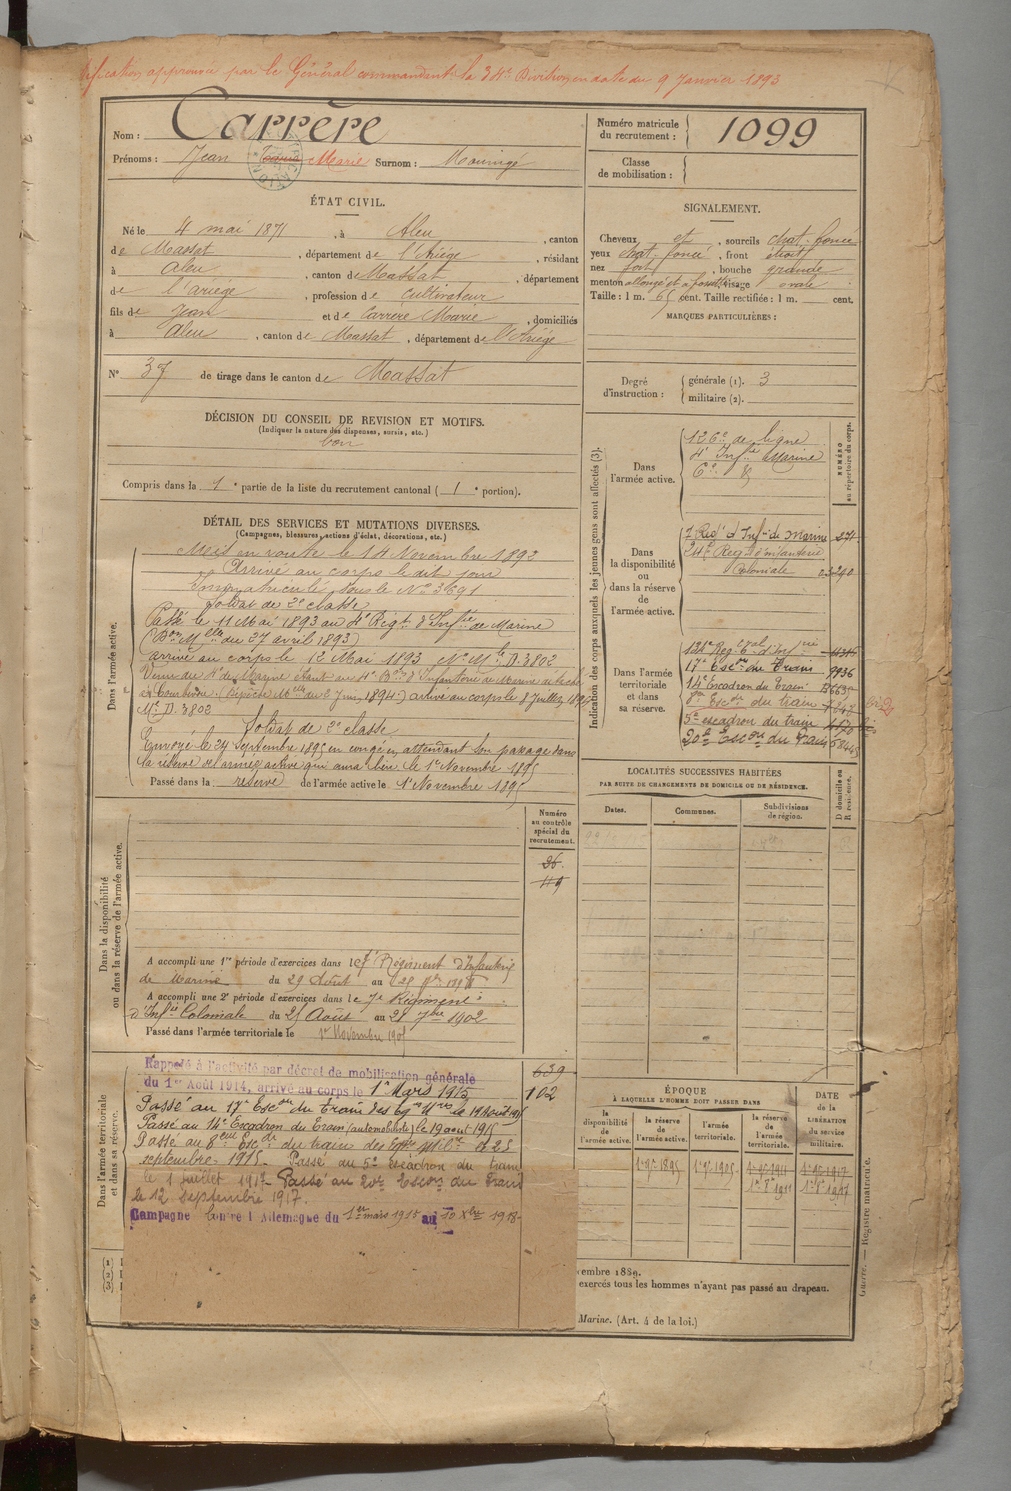 ification approuvée par le Général commandant la 34e Division, en date du 9 Janvier 1893
Nom : Carrère
Prénoms : Jean Marie Surnom :
Numéro matricule du recrutement : 1099
Classe de mobilisation :
ÉTAT CIVIL.
Né le 4 mai 1871, à Aleu, canton
de Massat, département de l'Ariège, résidant
à Aleu, canton de Massat, département
de l'ariège, profession de cultivateur
fils de Jean et de Carrère Marie, domiciliés
à Aleu, canton de Massat, département de l'Ariège
No 37 de tirage dans le canton de Massat
DÉCISION DU CONSEIL DE REVISION ET MOTIFS.
(Indiquer la nature des dispenses, sursis, etc.)
bon
Compris dans la 1e partie de la liste du recrutement cantonal (1e portion).
SIGNALEMENT.
Cheveux et, sourcils chat. foncé
yeux chat. foncé, front étroit
nez fort, bouche grande
menton allongé et à fossette visage ovale
Taille : 1 m. 65 cent. Taille rectifiée : 1 m. cent.
MARQUES PARTICULIÈRES :
Degré d'instruction :
générale (1). 3
militaire (2).
Indication des corps auxquels les jeunes gens sont affectés (3).
NUMÉRO au répertoire du corps.
Dans l'armée active.
126e de ligne
4e Infie Marine
Dans la disponibilité ou dans la réserve de l'armée active.
7 Regt d'Infie de Marine 271
24e Regt d'infanterie
Coloniale 03240
Dans l'armée territoriale et dans sa réserve.
17e Escon du Train 9936
14e Escadron du Train
8e Escon du train
5e escadron du train
20e Escon du Train
DÉTAIL DES SERVICES ET MUTATIONS DIVERSES.
(Campagnes, blessures, actions d'éclat, décorations, etc.)
Dans l'armée active.
Mis en route le 14 Novembre 1892
Arrivé au corps le dit jour
Immatriculé sous le No 3691
Soldat de 2e classe
Passé le 11 Mai 1893 au 4e Régt d'Infie de Marine
(Bon Melle du 27 avril 1893)
arrivé au corps le 12 Mai 1893 No Mle D.3802
Mle D. 3802
Soldat de 2e classe
Envoyé le 24 Septembre 1895 en congé en attendant son passage dans
la réserve de l'armée active qui aura lieu le 1er Novembre 1895
Passé dans la réserve de l'armée active le 1er Novembre 1895
LOCALITÉS SUCCESSIVES HABITÉES
PAR SUITE DE CHANGEMENTS DE DOMICILE OU DE RÉSIDENCE.
Dates. Communes. Subdivisions de région. D domicile ou R résidence.
Numéro au contrôle spécial du recrutement.
36
119
Dans la disponibilité ou dans la réserve de l'armée active.
A accompli une 1re période d'exercices dans le 7e Régiment d'Infanterie
de Marine du 29 Août au
A accompli une 2e période d'exercices dans le 7e Régiment
d'Infie Coloniale du 25 Aout au 21 7bre 1902
Passé dans l'armée territoriale le 1er Novembre 1905
Dans l'armée territoriale et dans sa réserve.
Rappelé à l'activité par décret de mobilisation générale 639
du 1er Août 1914, arrivé au corps le 1er Mars 1915 102
Passé au 17e Escon du Train des Eqges Mres le 19 Août 1915
Passé au 14e Escadron du Train (automobiliste) le 19 aout 1915
septembre 1915. Passé au 5e Escadron du train
le 1 juillet 1917. Passé au 20e Escon du Train
le 12 septembre 1917.
Campagne contre l'Allemagne du 1er mars 1915 au 10 Xbre 1918
ÉPOQUE
À LAQUELLE L'HOMME DOIT PASSER DANS
la disponibilité de l'armée active.
la réserve de l'armée active.
l'armée territoriale.
la réserve de l'armée territoriale.
DATE de la LIBÉRATION du service militaire.
1er 9bre 1895 1er 9bre 1905 1er 9bre 1911 1er 9bre 1917
cembre 1889.
exercés tous les hommes n'ayant pas passé au drapeau.
Marine. (Art. 4 de la loi.)
Guerre. — Registre matricule.